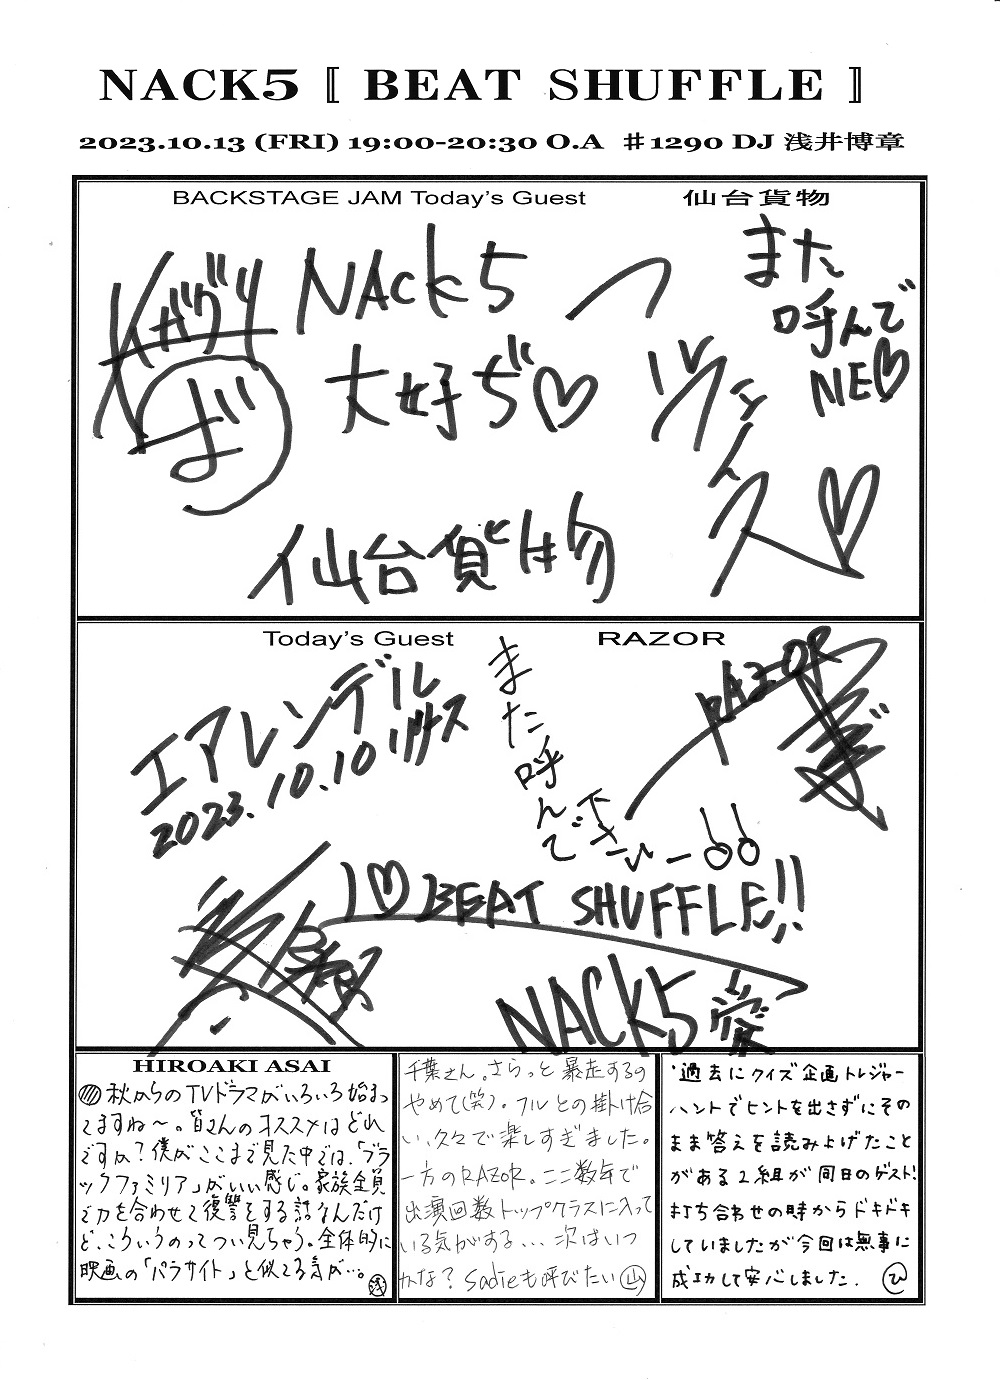 NACK5 〚 BEAT SHUFFLE 〛
2023.10.13 (FRI) 19:00-20:30 O.A ♯1290 DJ 浅井博章
BACKSTAGE JAM Today's Guest 仙台貨物
NACK5
大好ぢ♡
また
呼んで
NE♡
仙台貨物
Today's Guest RAZOR
エアレンデル
2023.10.10 リリース
また呼んで
下さいー
RAZOR
I♡BEAT SHUFFLE!!
NACK5愛
HIROAKI ASAI
秋からのTVドラマがいろいろ始まっ
てますね〜。皆さんのオススメはどれ
ですか?僕がここまで見た中では、「ブラ
ックファミリア」がいい感じ。家族全員
で力を合わせて復讐をする話なんだけ
ど、こういうのってつい見ちゃう。全体的に
映画の「パラサイト」と似てる気が…。浅
千葉さん。さらっと暴走するの
やめて(笑)。フルとの掛け合
い、久々で楽しすぎました。
一方のRAZOR。ここ数年で
出演回数トップクラスに入って
いる気がする...次はいつ
かな?Sadieも呼びたい 山
・過去にクイズ企画トレジャー
ハントでヒントを出さずにその
まま答えを読みよげたこと
がある2組が同日のゲスト!
打ち合わせの時からドキドキ
していましたが今回は無事に
成功して安心しました. ひ